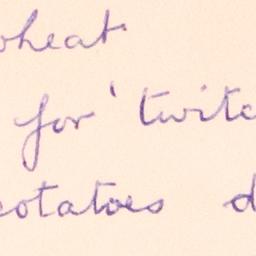 wheat
for 'twitc
potatoes d